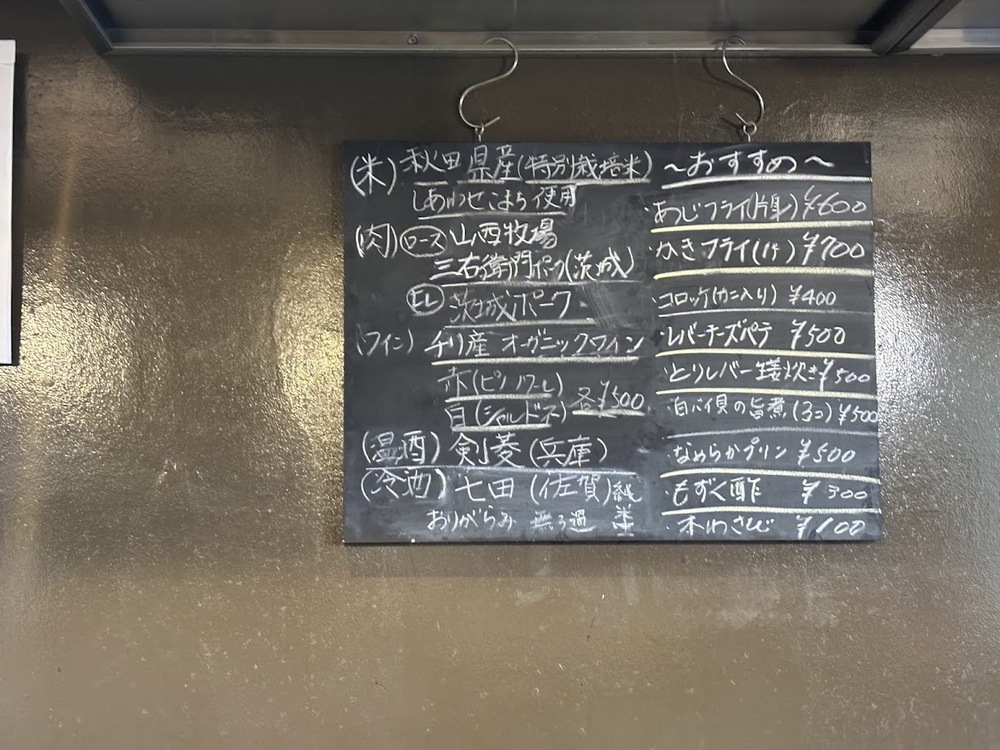 (米) 秋田県産(特別栽培米)
しあわせこまち 使用
(肉) ロース 山西牧場
三右衛門ポーク(茨城)
ヒレ 茨城ポーク
(ワイン) チリ産 オーガニックワイン
赤(ピノノワール)
白(シャルドネ) 各¥500
(温酒) 剣菱 (兵庫)
(冷酒) 七田 (佐賀) 純米
おりがらみ 無ろ過 生
〜おすすめ〜
・あじフライ(片身) ¥600
・かきフライ(1ケ) ¥700
・コロッケ(カニ入り) ¥400
・レバーチーズパテ ¥500
・とりレバー生姜炊き ¥500
・白バイ貝の旨煮(3コ) ¥500
・なめらかプリン ¥500
・もずく酢 ¥300
・本わさび ¥100